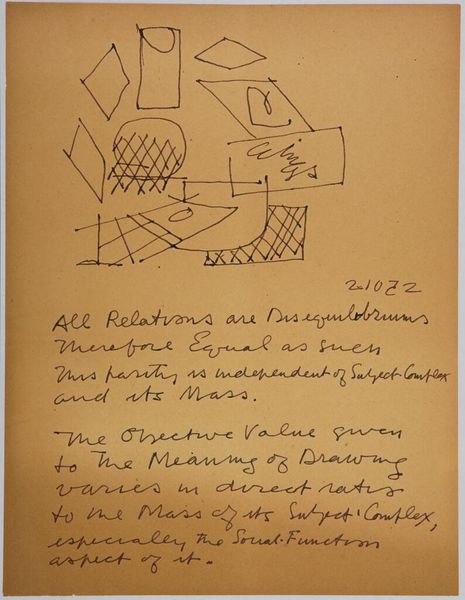 2.10.72
All Relations are Disequilibriums
Therefore Equal as such
This parity is independent of Subject-Complex
and its Mass.
The Objective Value given
to The Meaning of Drawing
varies in direct ratio
to the Mass of its Subject-Complex,
especially the Social-Function
aspect of it.